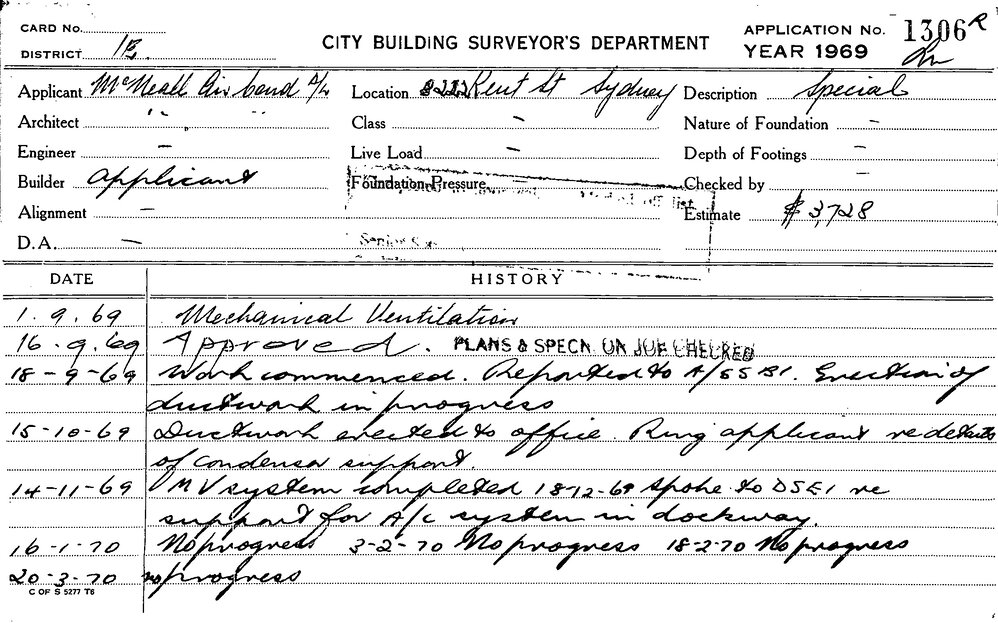 CARD No.
DISTRICT 1B.
CITY BUILDING SURVEYOR'S DEPARTMENT
APPLICATION No. 1306 R
YEAR 1969
Applicant McNeall Air
Location Kent St Sydney
Description Special
Architect " "
Class –
Nature of Foundation –
Engineer –
Live Load –
Depth of Footings –
Builder applicant
Foundation Pressure
Checked by –
Alignment –
off list
Estimate $ 3,728
D.A. –
Senior
DATE HISTORY
1.9.69 Mechanical Ventilation
16.9.69 Approved. PLANS & SPECN. ON JOB CHECKED
18-9-69 Work commenced. Reported to A/SSBI. Erection of
ductwork in progress
15-10-69 Ductwork erected to office. Ring applicant re details
of condensor support.
14-11-69 MV system completed 18-12-69 Spoke to DSEI re
support for A/c system in dockway.
16-1-70 No progress 3-2-70 No progress 18-2-70 No progress
20-3-70 no progress
C OF S 5277 T6